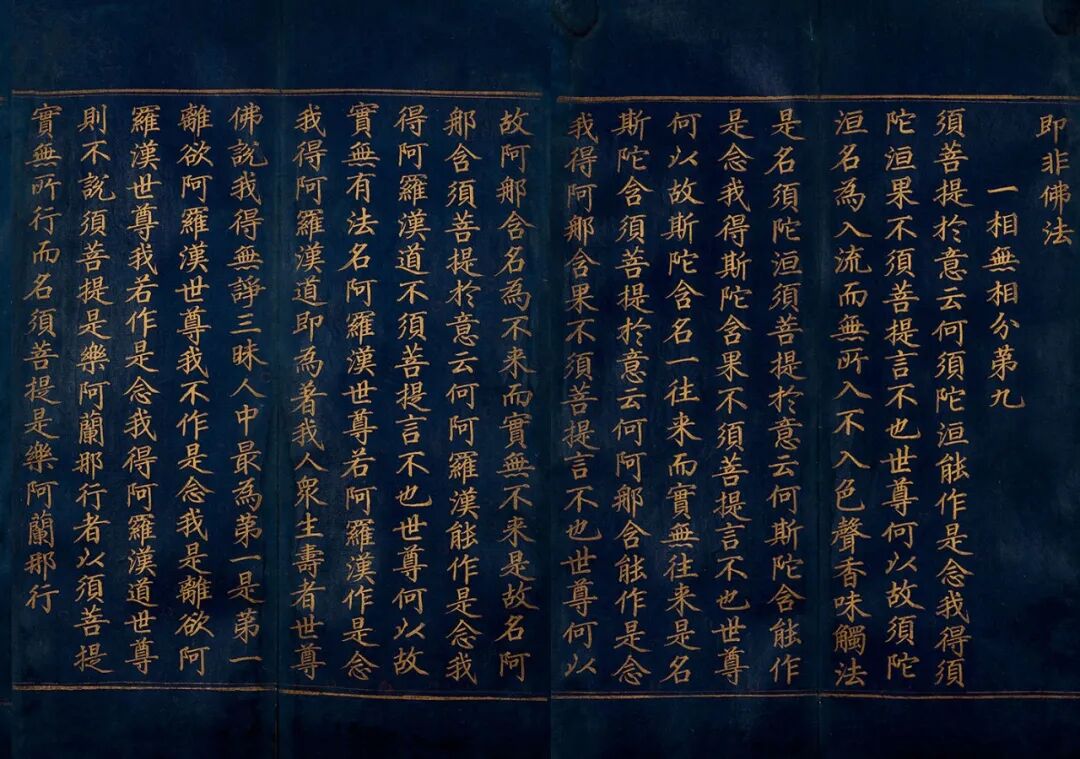 即非佛法
一相無相分第九
須菩提於意云何須陀洹能作是念我得須
陀洹果不須菩提言不也世尊何以故須陀
洹名為入流而無所入不入色聲香味觸法
是名須陀洹須菩提於意云何斯陀含能作
是念我得斯陀含果不須菩提言不也世尊
何以故斯陀含名一往来而實無往来是名
斯陀含須菩提於意云何阿那含能作是念
我得阿那含果不須菩提言不也世尊何以
故阿那含名為不来而實無不来是故名阿
那含須菩提於意云何阿羅漢能作是念我
得阿羅漢道不須菩提言不也世尊何以故
實無有法名阿羅漢世尊若阿羅漢作是念
我得阿羅漢道即為著我人衆生壽者世尊
佛說我得無諍三昧人中最為第一是第一
離欲阿羅漢世尊我不作是念我是離欲阿
羅漢世尊我若作是念我得阿羅漢道世尊
則不說須菩提是樂阿蘭那行者以須菩提
實無所行而名須菩提是樂阿蘭那行